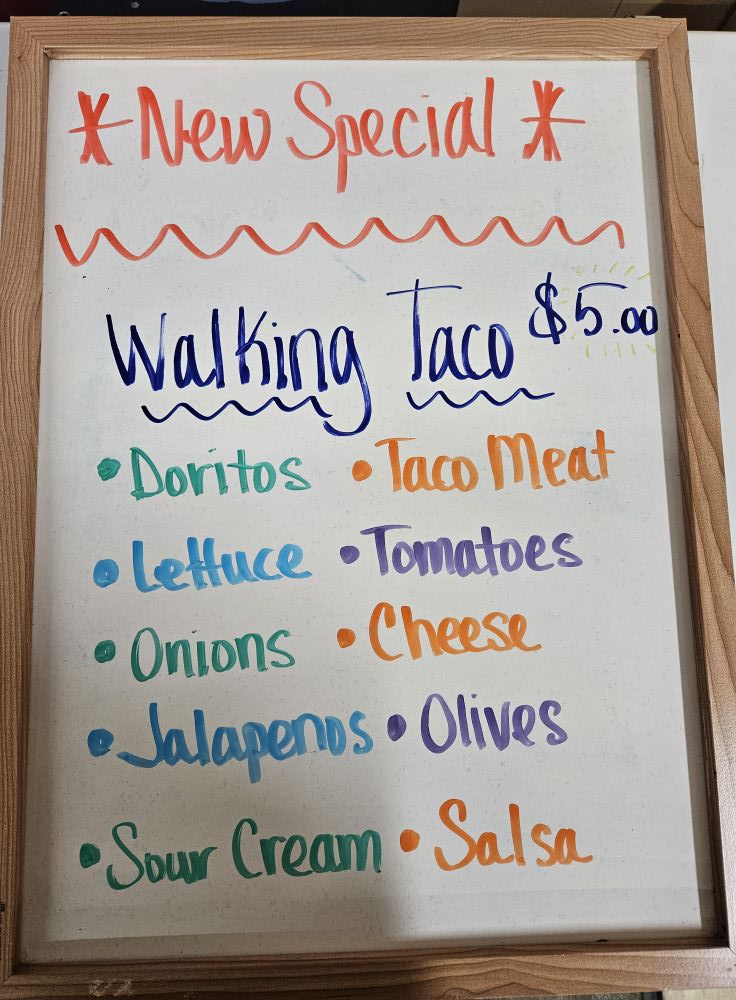 * New Special *
Walking Taco $5.00
• Doritos • Taco Meat
• Lettuce • Tomatoes
• Onions • Cheese
• Jalapenos • Olives
• Sour Cream • Salsa